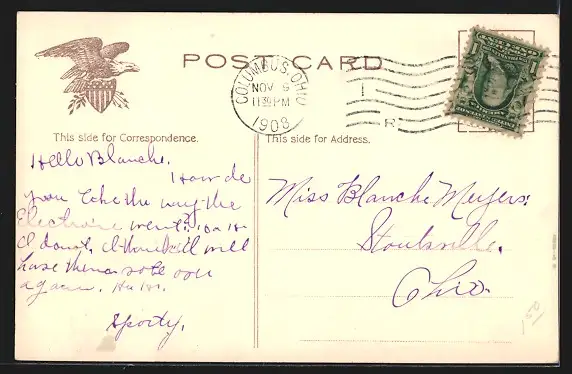 POST CARD
COLUMBUS, OHIO
NOV 9
11 30 PM
1908
1
R
1 1
This side for Correspondence.
This side for Address.
Hello Blanche.
How do
you like the way the
Election went?
I don't, I think I will
have them
again. Ha ha.
Sporty.
Miss Blanche Meyers.
Stoutsville.
Ohio.